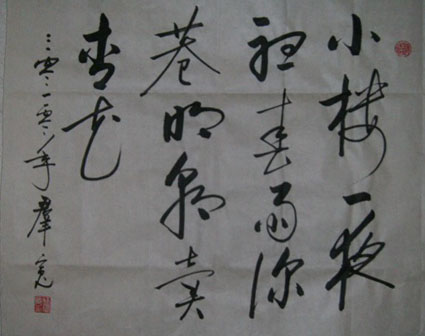 小楼一夜
听春雨深
巷明朝卖
杏花
二零一零年羣